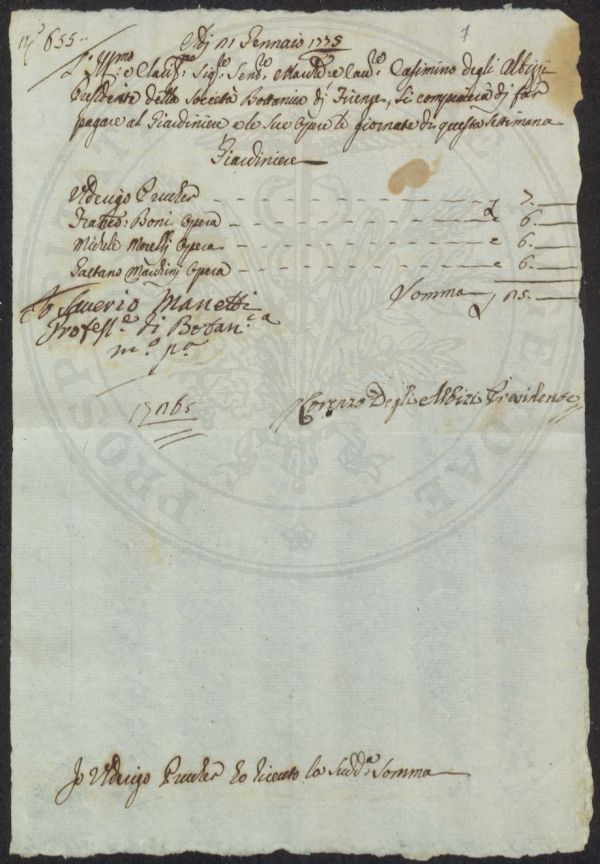 N.° 655.
7
Adj 21 Gennaio 1775
L'Ill.mo e Clariss.mo Sig.re Sen.re March.e e Cav.re Casimirro degli Albizzi
Presidente della Società Bottanica di Firenze, si compiacerà di far
pagare al Giardiniere e le sue Opere le giornate di questa settimana
Giardiniere
Ulderigo Prucker 7.
Franc.o Boni Opera 6.
Michele Morelli Opera 6.
Gaetano Mardini Opera 6.
Somma 25.
Io Saverio Manetti
Profess.e di Botan.ca
m.o p.a
Lorenzo Degli Albizi Presidente
Io Ulderigo Prucker ho ricevuto la sudd.a somma
PROSPERITATI